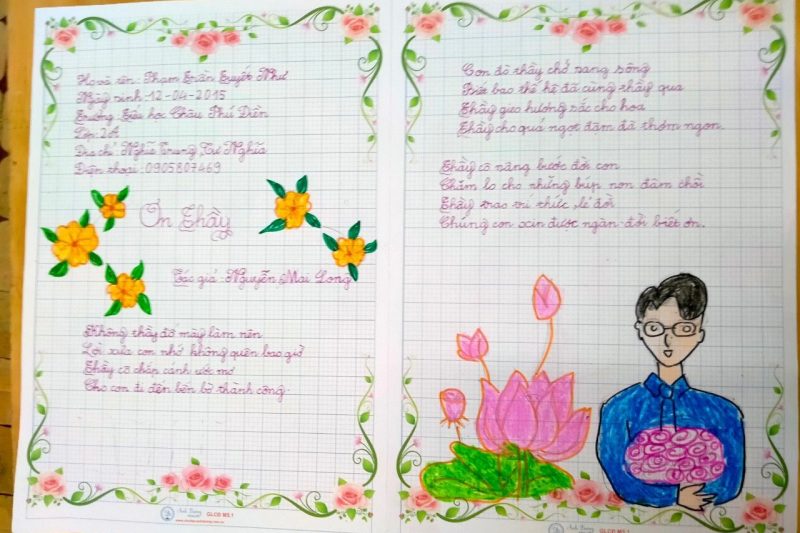 Họ và tên: Phạm Trần Tuyết Như
Ngày sinh: 12-04-2015
Trường Tiểu học Châu Phú Điền
Lớp: 2A
Địa chỉ: Nghĩa Trung, Tư Nghĩa
Điện thoại: 0905807469
Ơn Thầy
Tác giả: Nguyễn Mai Long
Không thầy đố mày làm nên
Lời xưa con nhớ không quên bao giờ
Thầy cô chắp cánh ước mơ
Cho con đi đến bến bờ thành công
Con đò thầy chở sang sông
Biết bao thế hệ đã cùng thầy qua
Thầy gieo hương sắc cho hoa
Thầy cho quả ngọt đậm đà thơm ngon.
Thầy cô nâng bước đời con
Chăm lo cho những búp non đâm chồi
Thầy trao tri thức, lẽ đời
Chúng con xin được ngàn đời biết ơn.
GLCĐ MS.1
GLCĐ MS.1